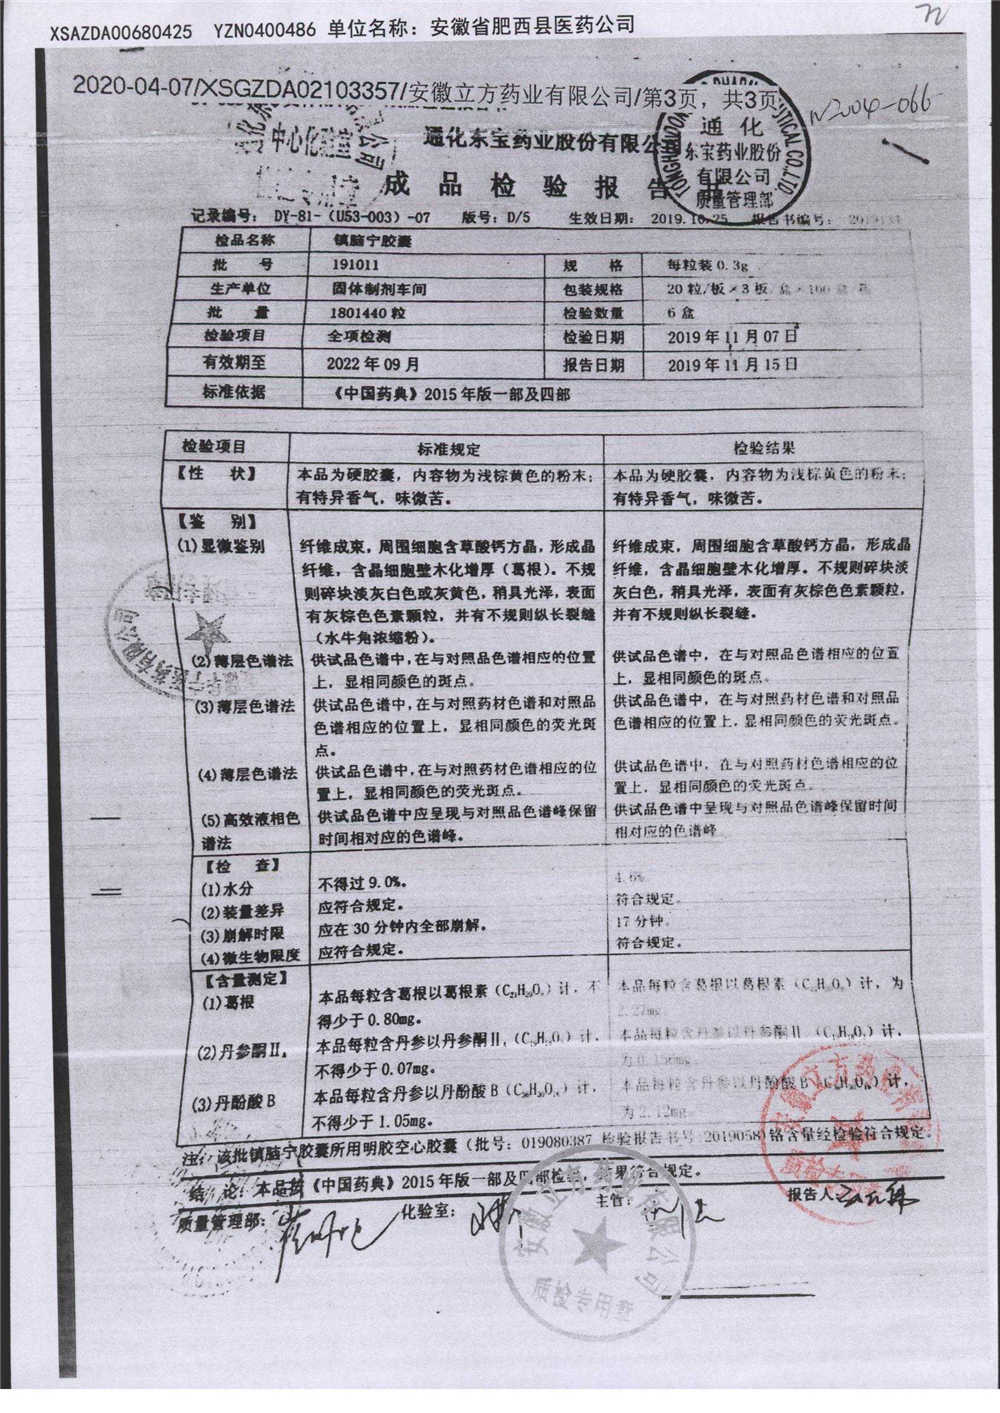 XSAZDA00680425 YZN0400486 单位名称：安徽省肥西县医药公司
2020-04-07/XSGZDA02103357/安徽立方药业有限公司/第3页，共3页
中心化验室
通化东宝药业股份有限公司
通化
东宝药业股份
有限公司
质量管理部
成品检验报告书
记录编号： DY-81-（U53-003）-07 版号：D/5 生效日期： 2019.10.25 报告书编号：
检品名称 镇脑宁胶囊
批 号 191011 规 格 每粒装 0.3g
生产单位 固体制剂车间 包装规格 20 粒/板×3 板/盒×100 盒/箱
批 量 1801440 粒 检验数量 6 盒
检验项目 全项检测 检验日期 2019 年 11 月 07 日
有效期至 2022 年 09 月 报告日期 2019 年 11 月 15 日
标准依据 《中国药典》2015 年版一部及四部
检验项目 标准规定 检验结果
【性 状】 本品为硬胶囊，内容物为浅棕黄色的粉末； 本品为硬胶囊，内容物为浅棕黄色的粉末；
有特异香气，味微苦。 有特异香气，味微苦。
【鉴 别】
(1)显微鉴别 纤维成束，周围细胞含草酸钙方晶，形成晶 纤维成束，周围细胞含草酸钙方晶，形成晶
纤维，含晶细胞壁木化增厚（葛根）。不规 纤维，含晶细胞壁木化增厚。不规则碎块淡
则碎块淡灰白色或灰黄色，稍具光泽，表面 灰白色，稍具光泽，表面有灰棕色色素颗粒，
有灰棕色色素颗粒，并有不规则纵长裂缝 并有不规则纵长裂缝。
（水牛角浓缩粉）。
(2)薄层色谱法 供试品色谱中，在与对照品色谱相应的位置 供试品色谱中，在与对照品色谱相应的位置
上，显相同颜色的斑点。 上，显相同颜色的斑点。
(3)薄层色谱法 供试品色谱中，在与对照药材色谱和对照品 供试品色谱中，在与对照药材色谱和对照品
色谱相应的位置上，显相同颜色的荧光斑 色谱相应的位置上，显相同颜色的荧光斑点。
点。
(4)薄层色谱法 供试品色谱中，在与对照药材色谱相应的位 供试品色谱中，在与对照药材色谱相应的位
置上，显相同颜色的荧光斑点。 置上，显相同颜色的荧光斑点。
(5)高效液相色 供试品色谱中应呈现与对照品色谱峰保留 供试品色谱中呈现与对照品色谱峰保留时间
谱法 时间相对应的色谱峰。 相对应的色谱峰
【检 查】
(1)水分 不得过 9.0%。 4.6%
(2)装量差异 应符合规定。 符合规定。
(3)崩解时限 应在 30 分钟内全部崩解。 17 分钟。
(4)微生物限度 应符合规定。 符合规定。
【含量测定】
(1)葛根 本品每粒含葛根以葛根素（C₂₁H₂₀O₉）计，不 本品每粒含葛根以葛根素（C₂₁H₂₀O₉）计，为
得少于 0.80mg。 2.27mg。
(2)丹参酮Ⅱ_A 本品每粒含丹参以丹参酮Ⅱ_A（C₁₉H₁₈O₃）计， 本品每粒含丹参以丹参酮Ⅱ（C₁₉H₁₈O₃）计，
不得少于 0.07mg。
(3)丹酚酸 B 本品每粒含丹参以丹酚酸 B（C₃₆H₃₀O₁₆）计， 本品每粒含丹参以丹酚酸 B（C₃₆H₃₀O₁₆）计，
不得少于 1.05mg。 为 2.12mg。
注：该批镇脑宁胶囊所用明胶空心胶囊（批号：019080387 检验报告书号：2019058）铬含量经检验符合规定。
结 论：本品按《中国药典》2015 年版一部及四部检验，结果符合规定。
质量管理部： 化验室： 主管： 报告人：
质检专用章
质检专用章